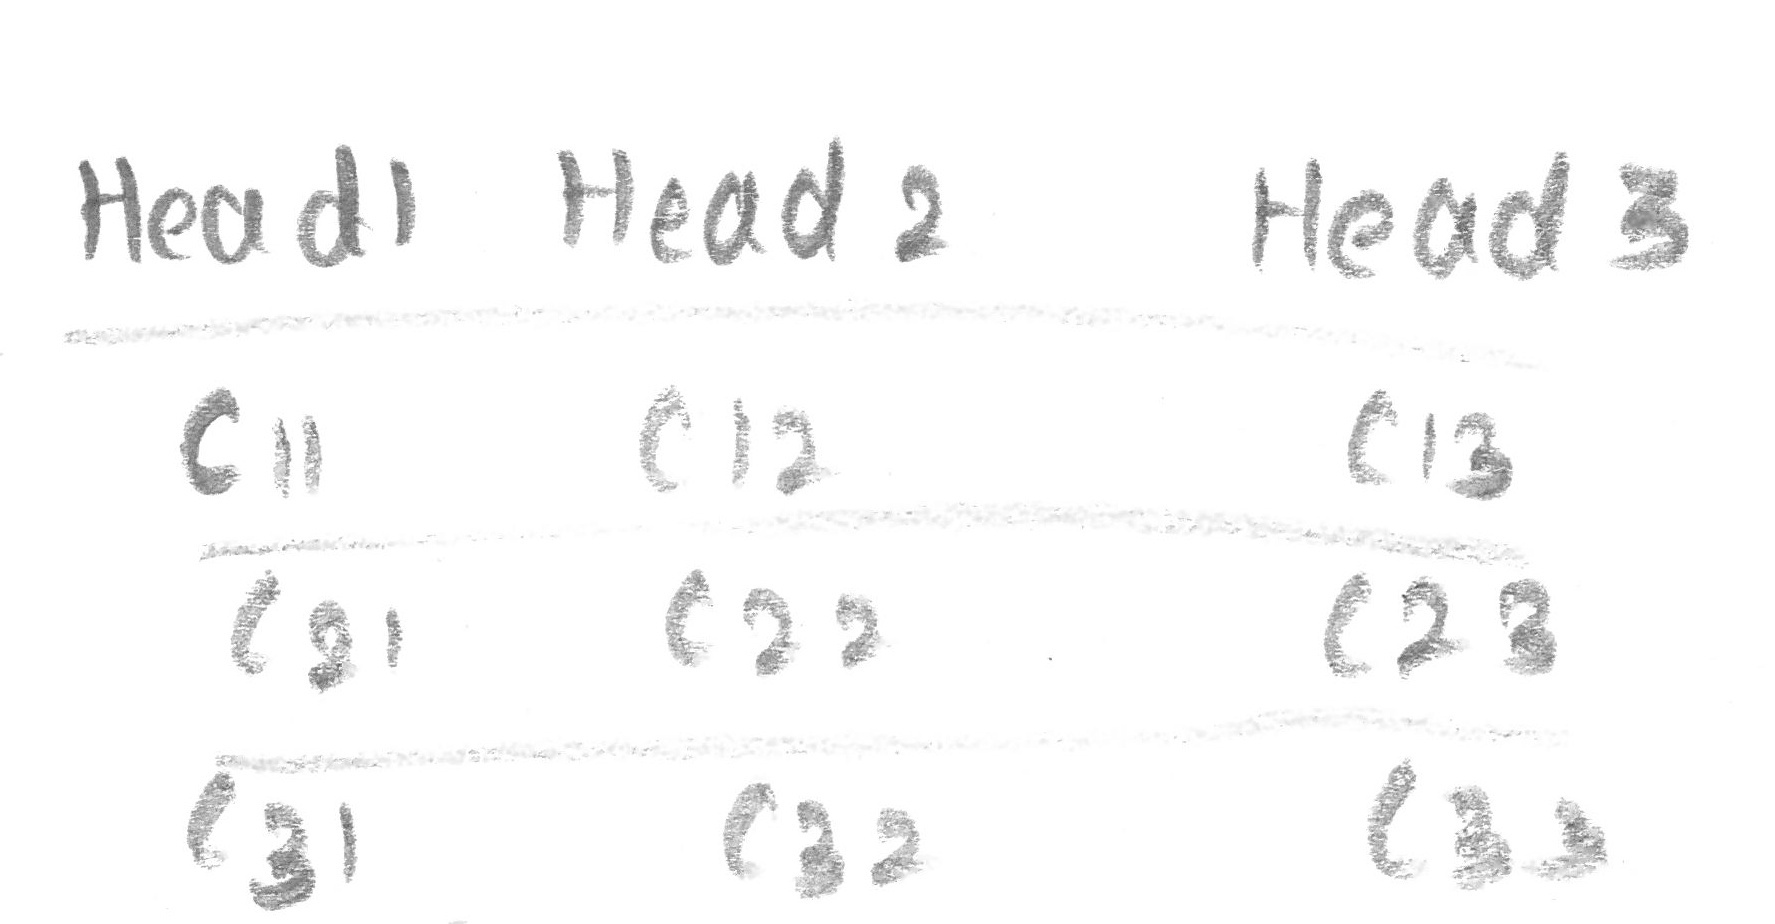 Head1 Head 2 Head 3
C11 C12 C13
C21 C22 C23
C31 C32 C33